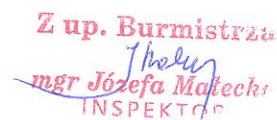 Z up. Burmistrza
mgr Józefa Małecka
INSPEKTOR